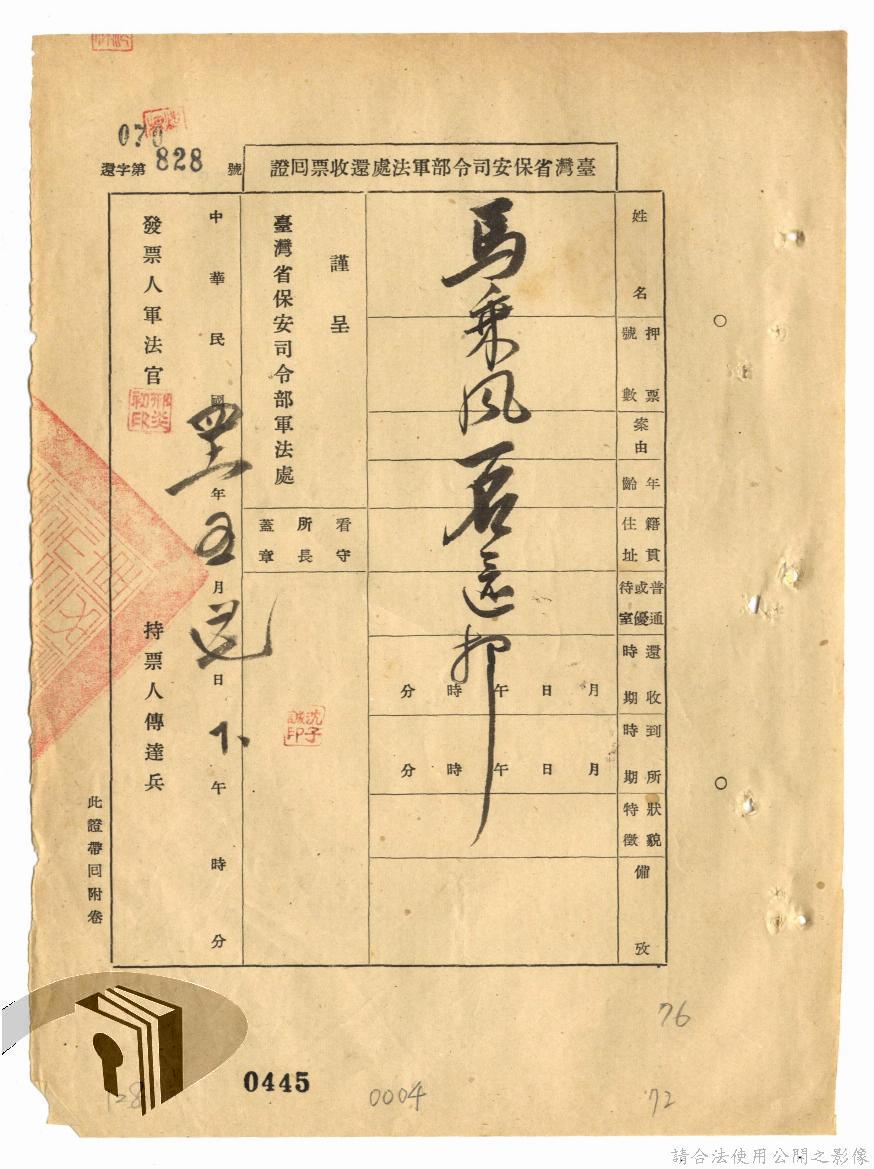 070
還字第828號
臺灣省保安司令部軍法處還收票回證
姓名
押票號數
案由
年齡
籍貫住址
普通或優待室
還收時期
月 日 午 時 分
到所時期
月 日 午 時 分
狀貌特徵
備攷
馬乘風君還押
謹呈
臺灣省保安司令部軍法處
看守所長蓋章
沈子誠印
中華民國 年五月 日下午 時 分
發票人軍法官
持票人傳達兵
此證帶回附卷
76
0445
0004
72
128
請合法使用公開之影像